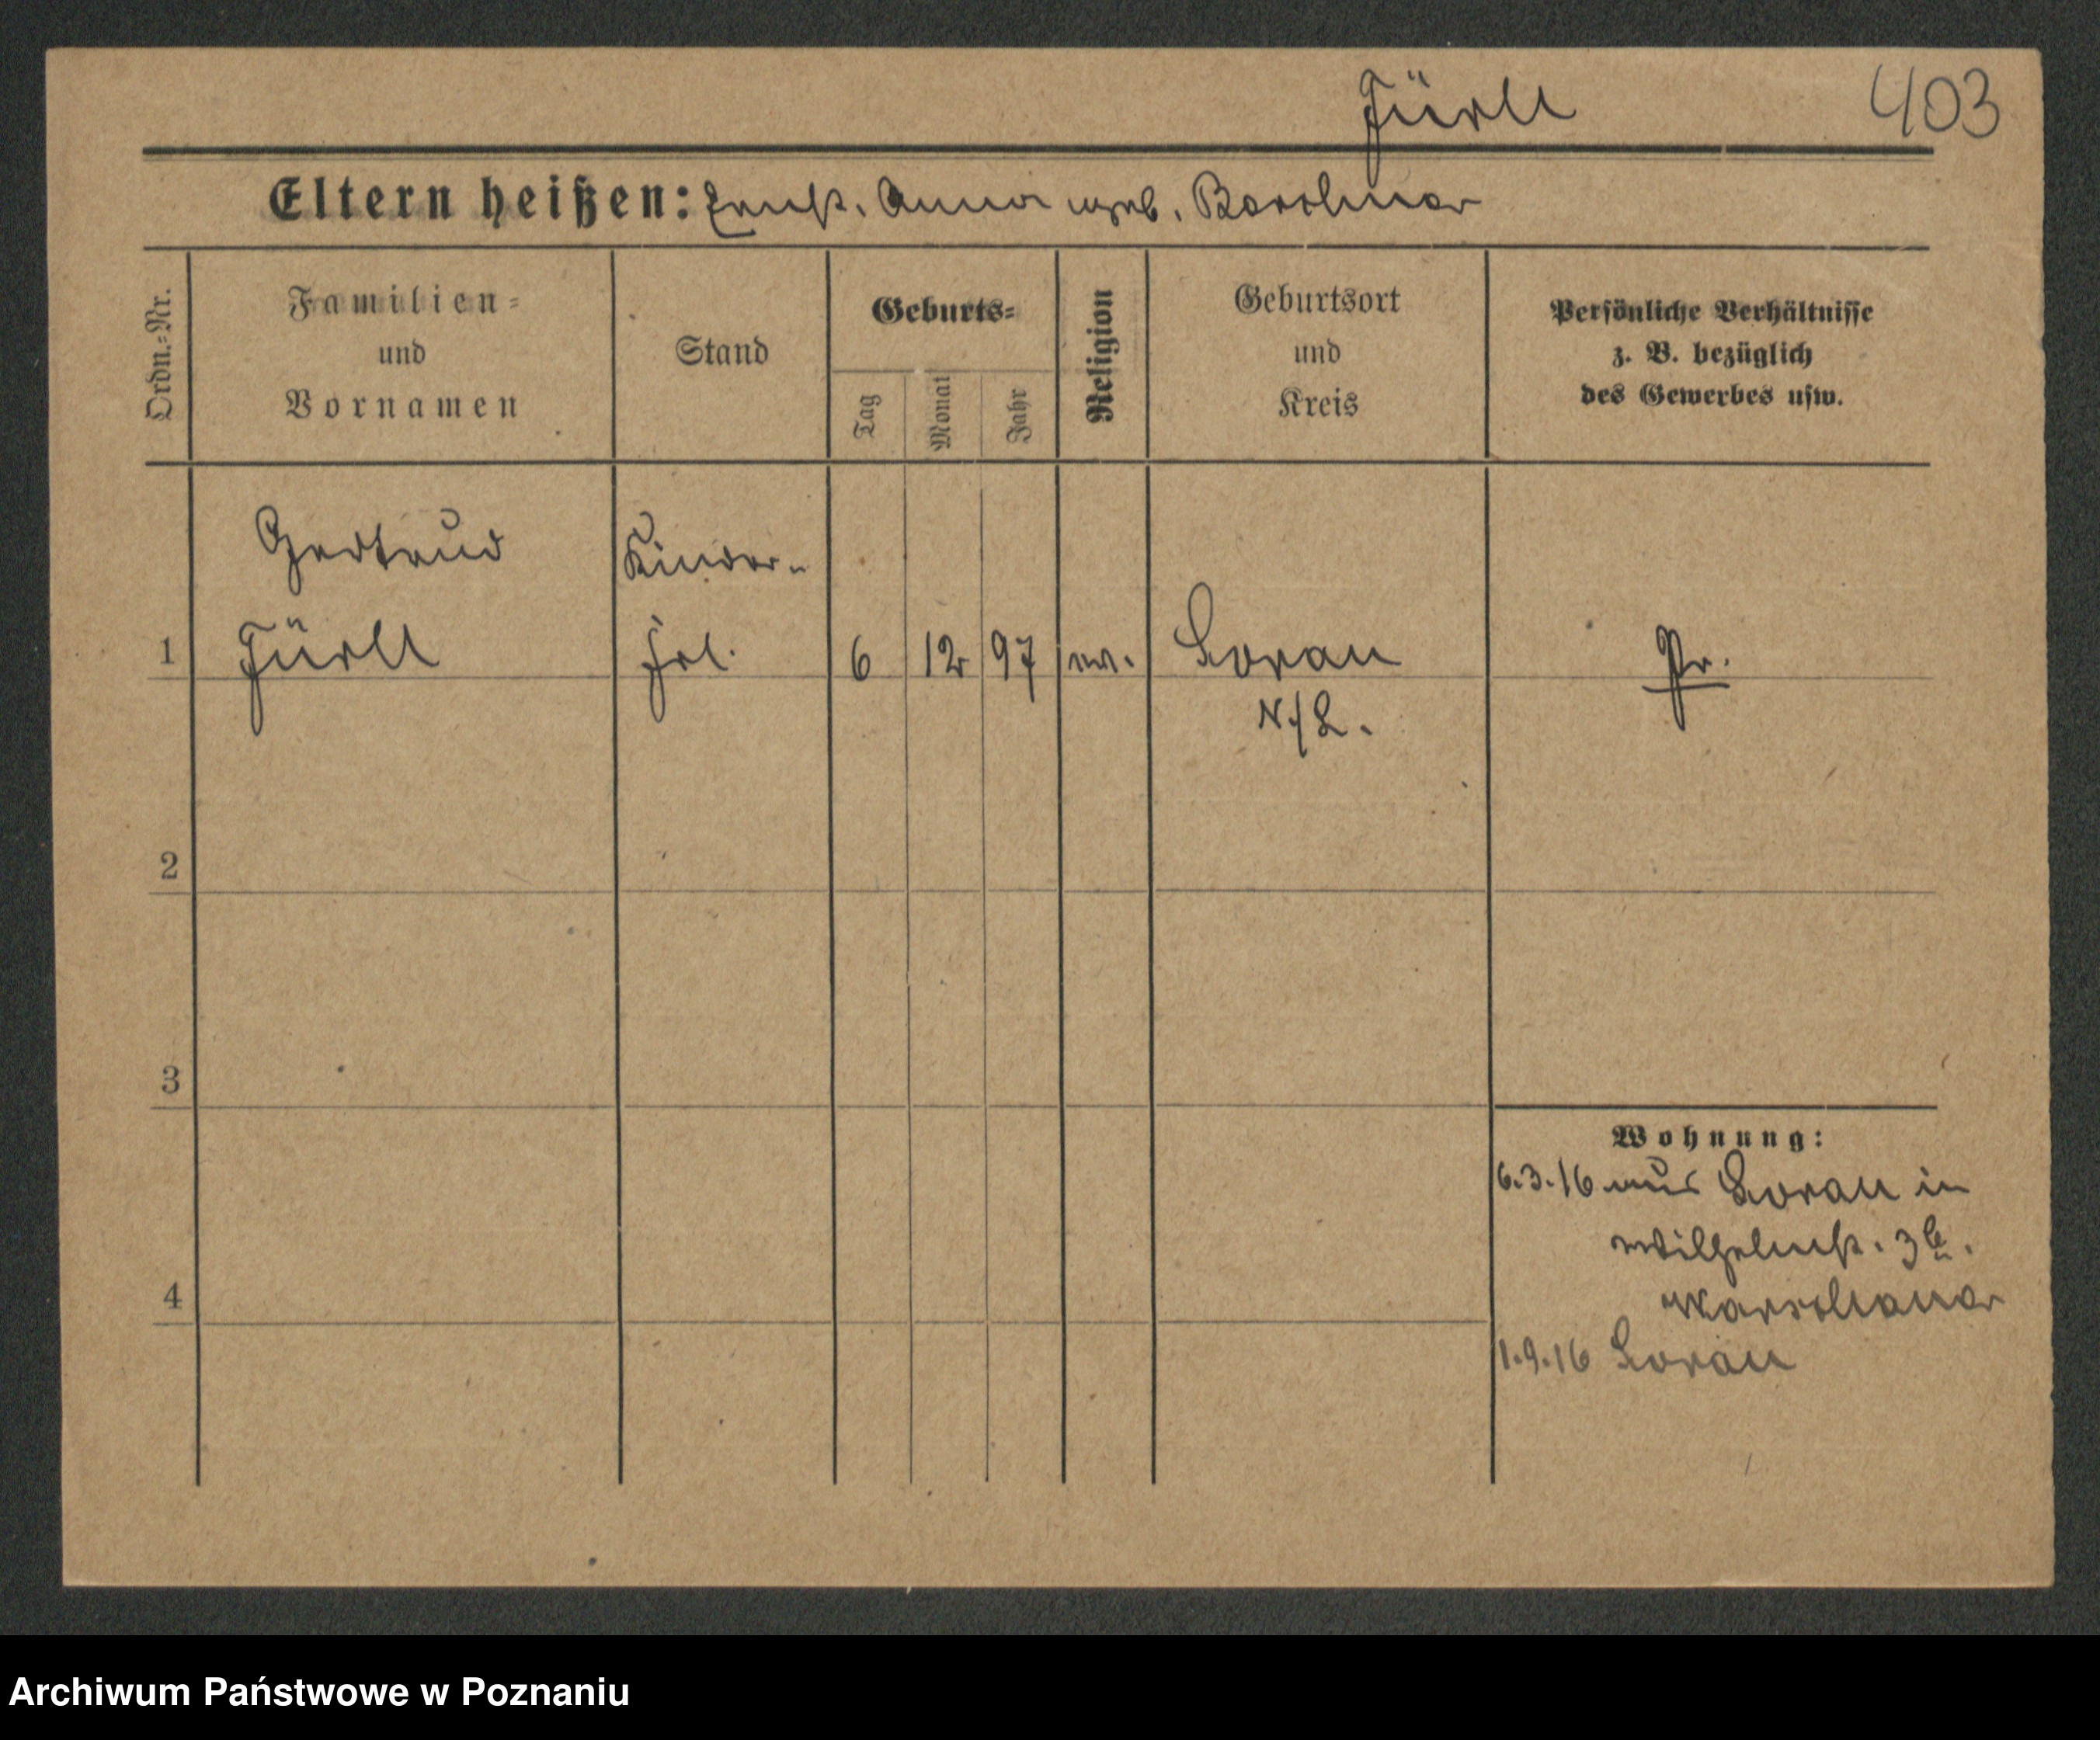 Fürll
403
Eltern heißen: Ernst. Anna geb.
Ordn.-Nr.
Familien-
und
Vornamen
Stand
Geburts-
Tag
Monat
Jahr
Religion
Geburtsort
und
Kreis
Persönliche Verhältnisse
z. B. bezüglich
des Gewerbes usw.
Gertrud
Kinder-
1
Fürll
Frl.
6
12
97
ev.
Sorau
Pr.
N/L.
2
3
Wohnung:
6.3.16 aus Sorau in
Wilhelmst.
4
Warschauer
1.9.16 Sorau
Archiwum Państwowe w Poznaniu